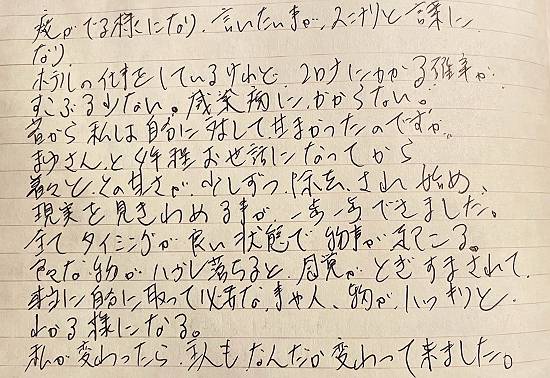 疫がでる様になり、言いたい事が、スンナリと言葉に
なり
ホテルの仕事をしているけれど、コロナにかかる確率が
すこぶる少ない。感染病にかからない。
昔から私は自分に対して甘まかったのですが
まゆさんと4年程お世話になってから
着々と、その甘さが、少しずつ、除去され始め、
現実を見きわめる事が、一歩一歩できました。
全てタイミングが良い状態で物事が起こる。
色々な物がハガレ落ちると、感覚がとぎすまされて、
本当に自分に取って必要な、事や人、物が、ハッキリと
わかる様になる。
私が変わったら、主人もなんだか変わって来ました。